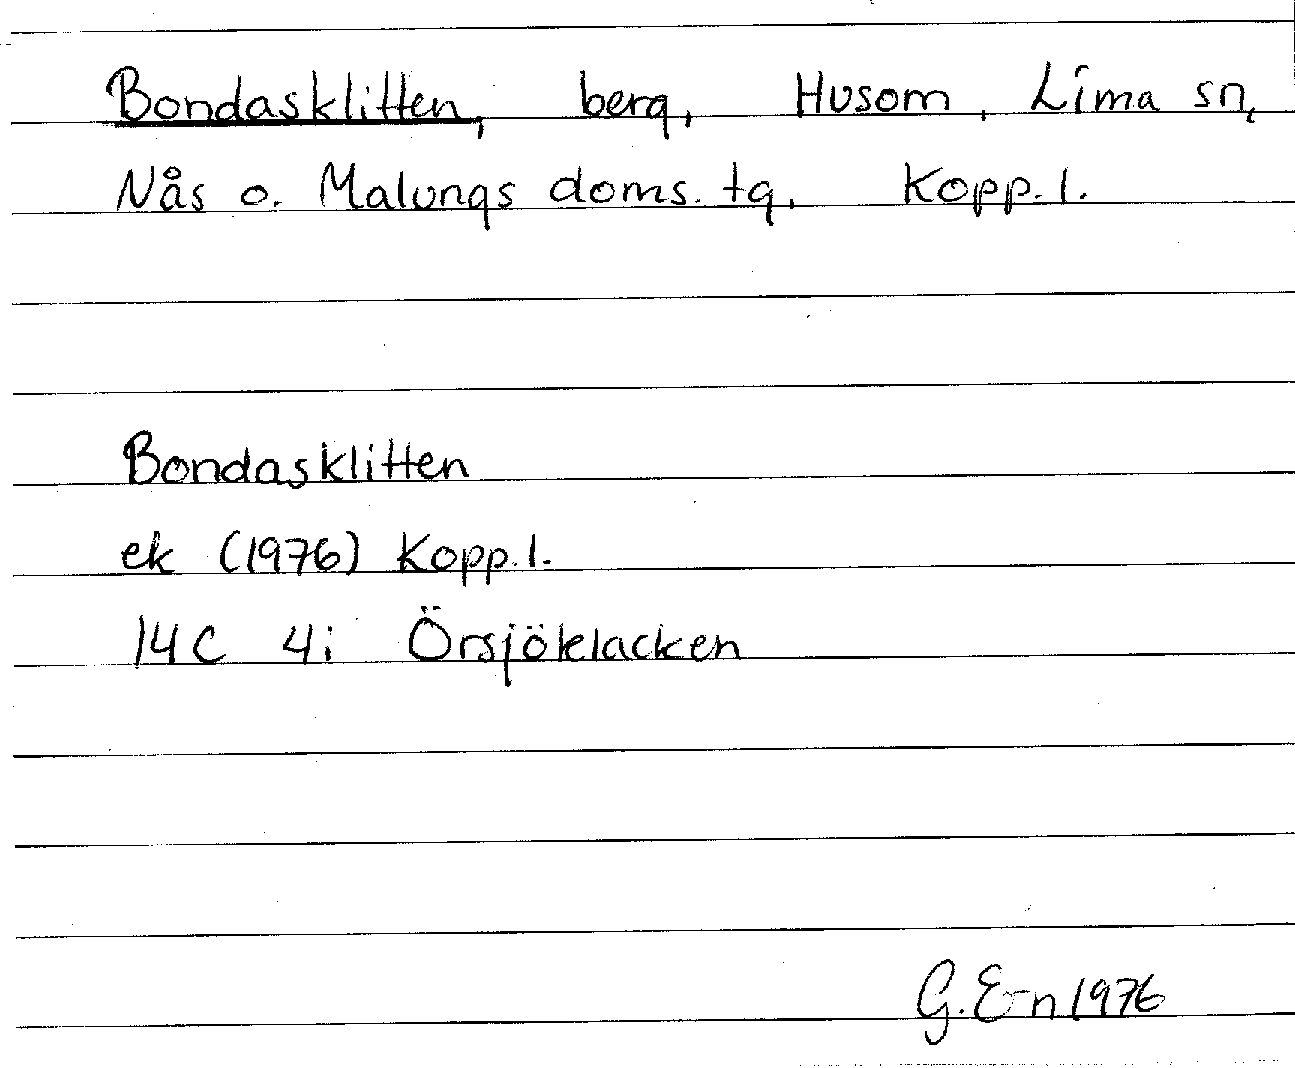 Bondasklitten, berg, Husom, Lima sn,
Nås o. Malungs doms. tg, Kopp. l.
Bondasklitten
ek (1976) Kopp. l.
14C 4i Örsjöklacken
G. E-n 1976